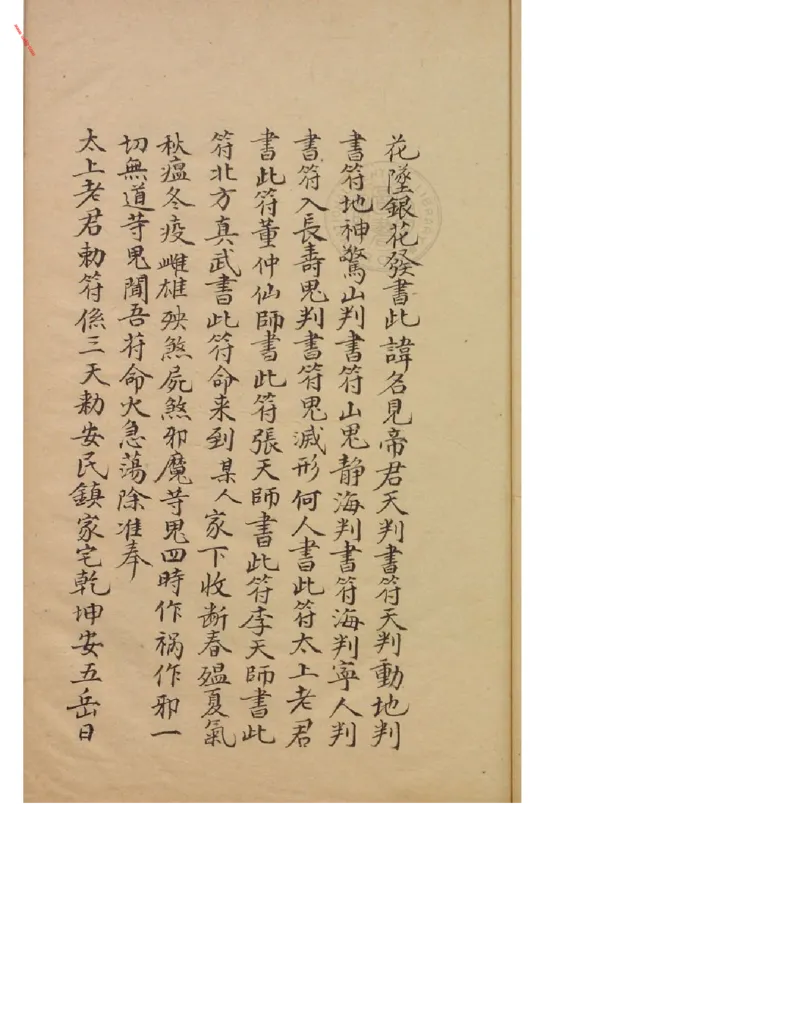 花墜銀花發書此諱名見帝君天判書符天判動地判
書符地神驚山判書符山鬼静海判書符海判寧人判
書符入長壽鬼判書符鬼滅形何人書此符太上老君
書此符董仲仙師書此符張天師書此符李天師書此
符北方真武書此符命来到某人家下收断春瘟夏氣
秋瘟冬疫雌雄殃煞屍煞邪魔䓁鬼四時作禍作邪一
切無道䓁鬼聞吾符命火急蕩除准奉
太上老君勅符係三天勅安民鎮家宅乾坤安五岳日